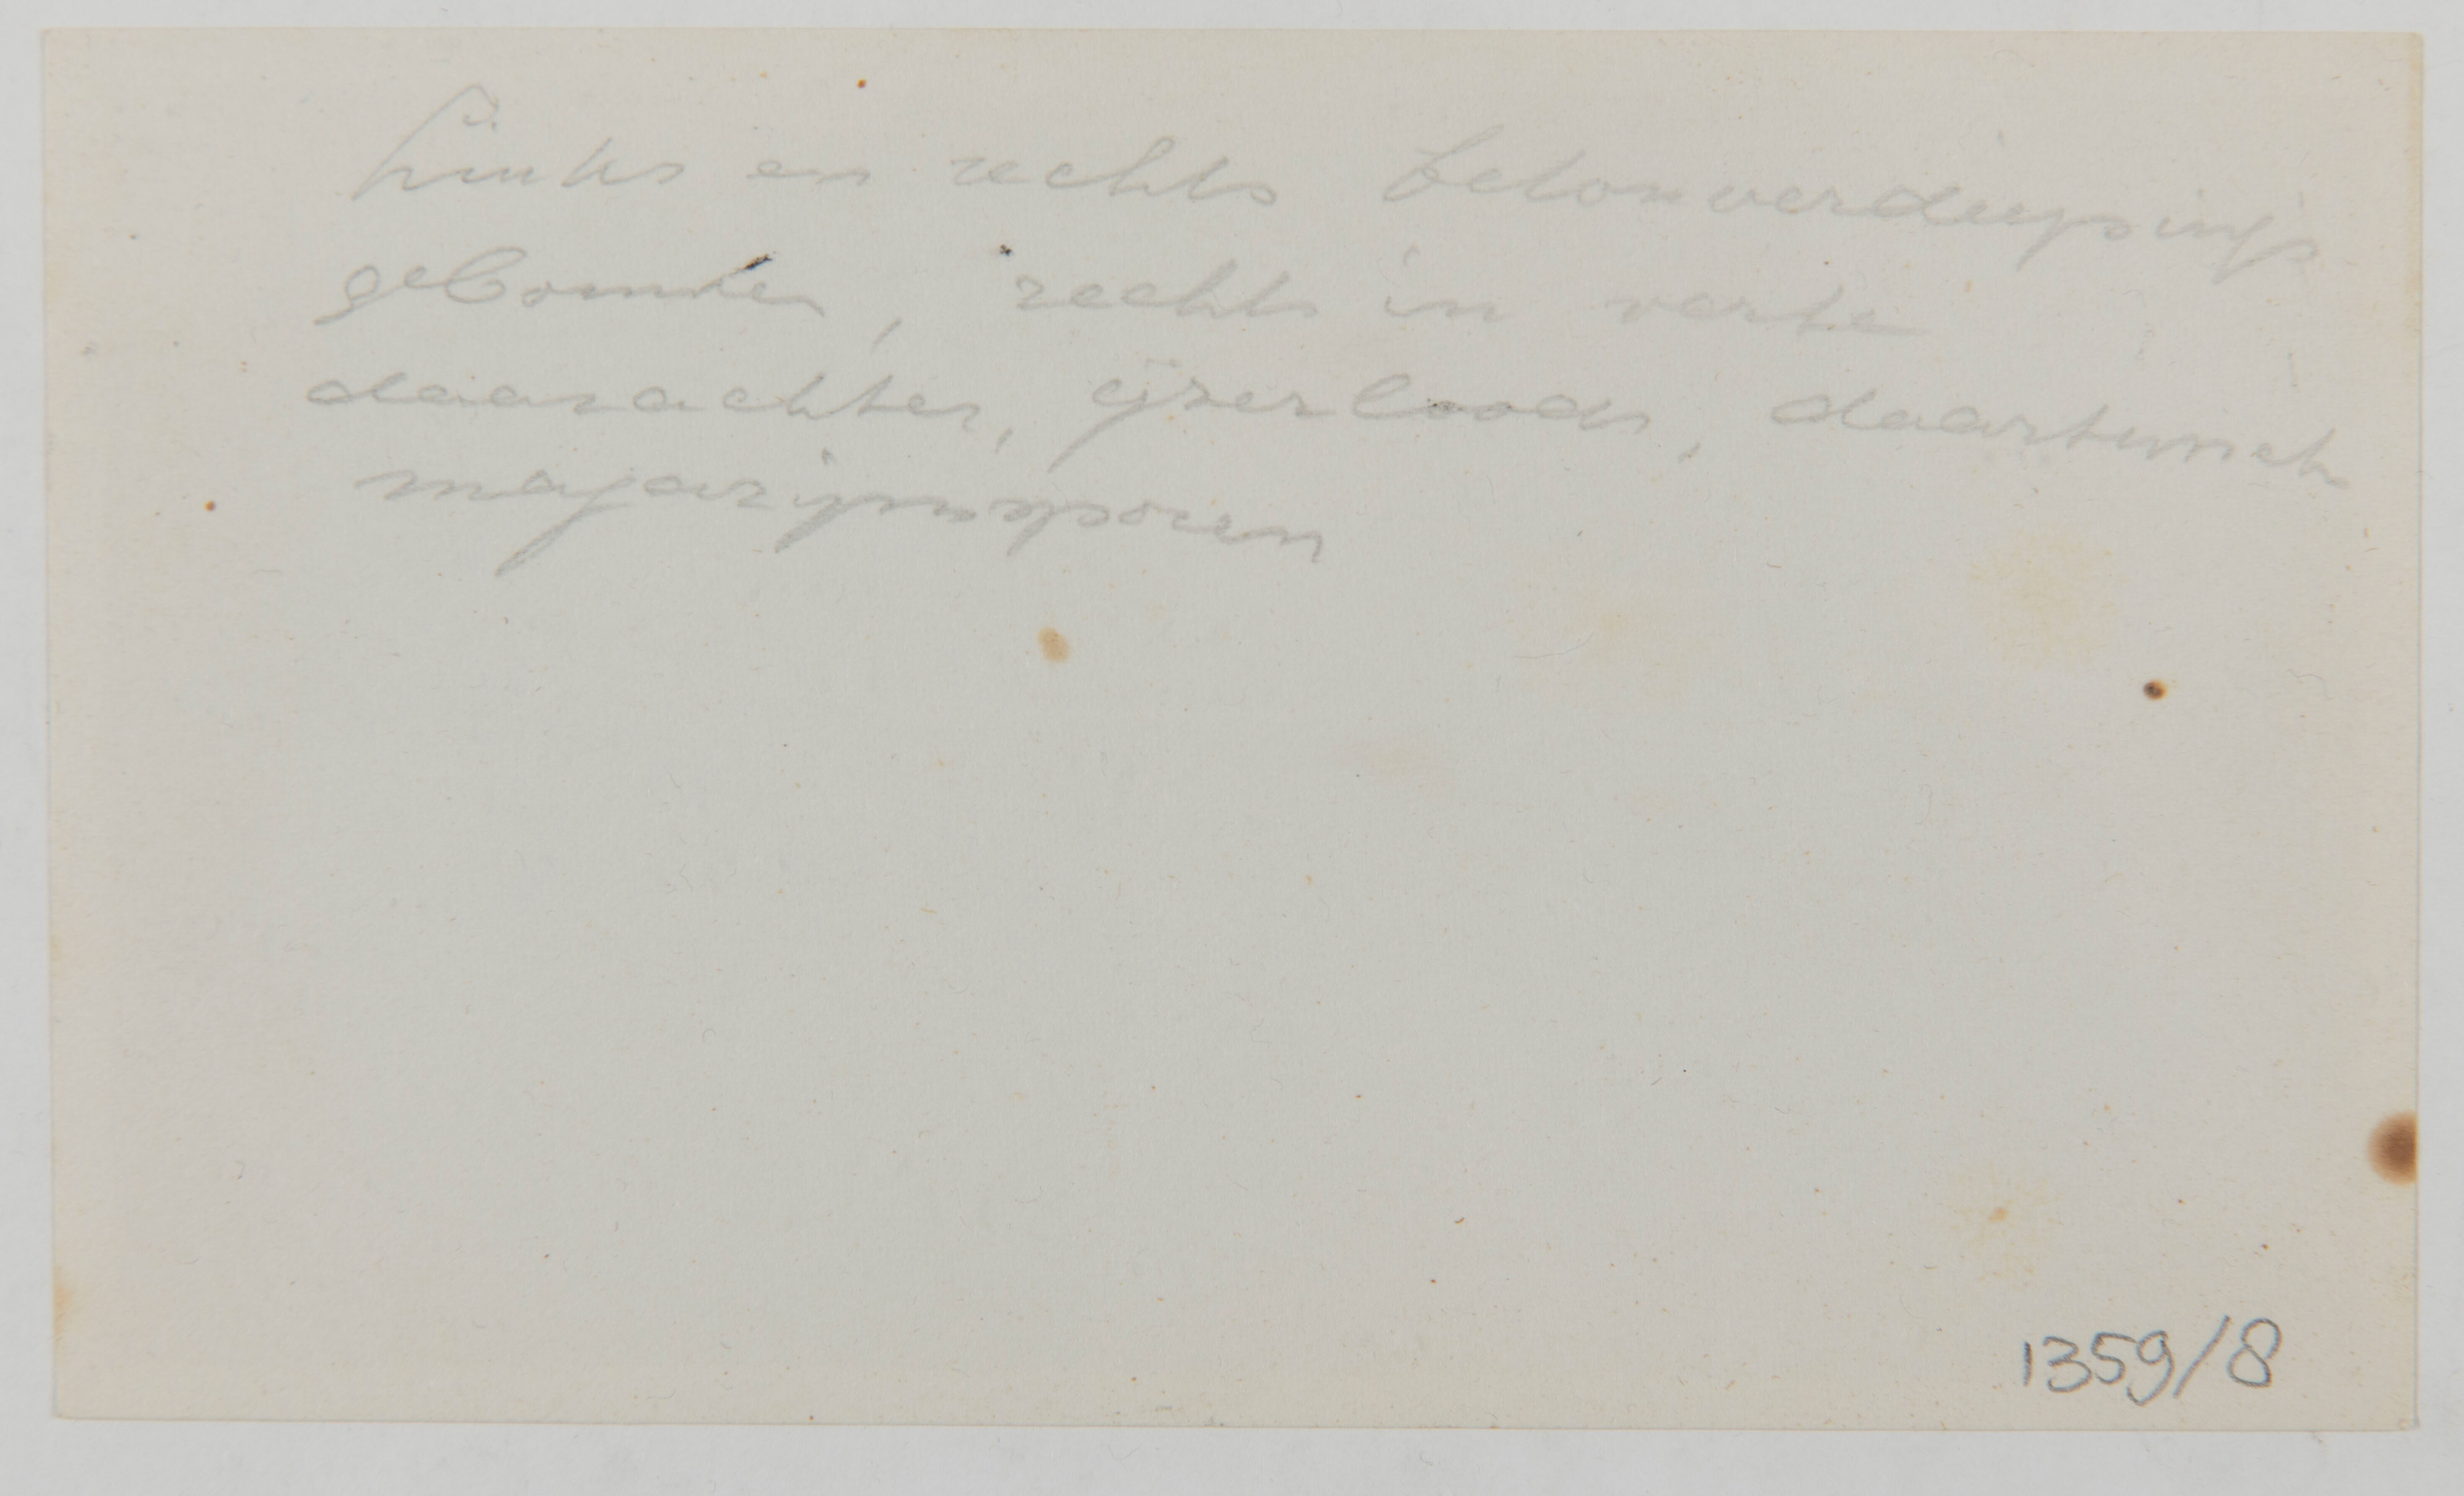 Links en rechts betonverdiepings
gebouwen, rechts in verte
daarachter, ijzerloods, daartusch
magazijnssporen
1359/8